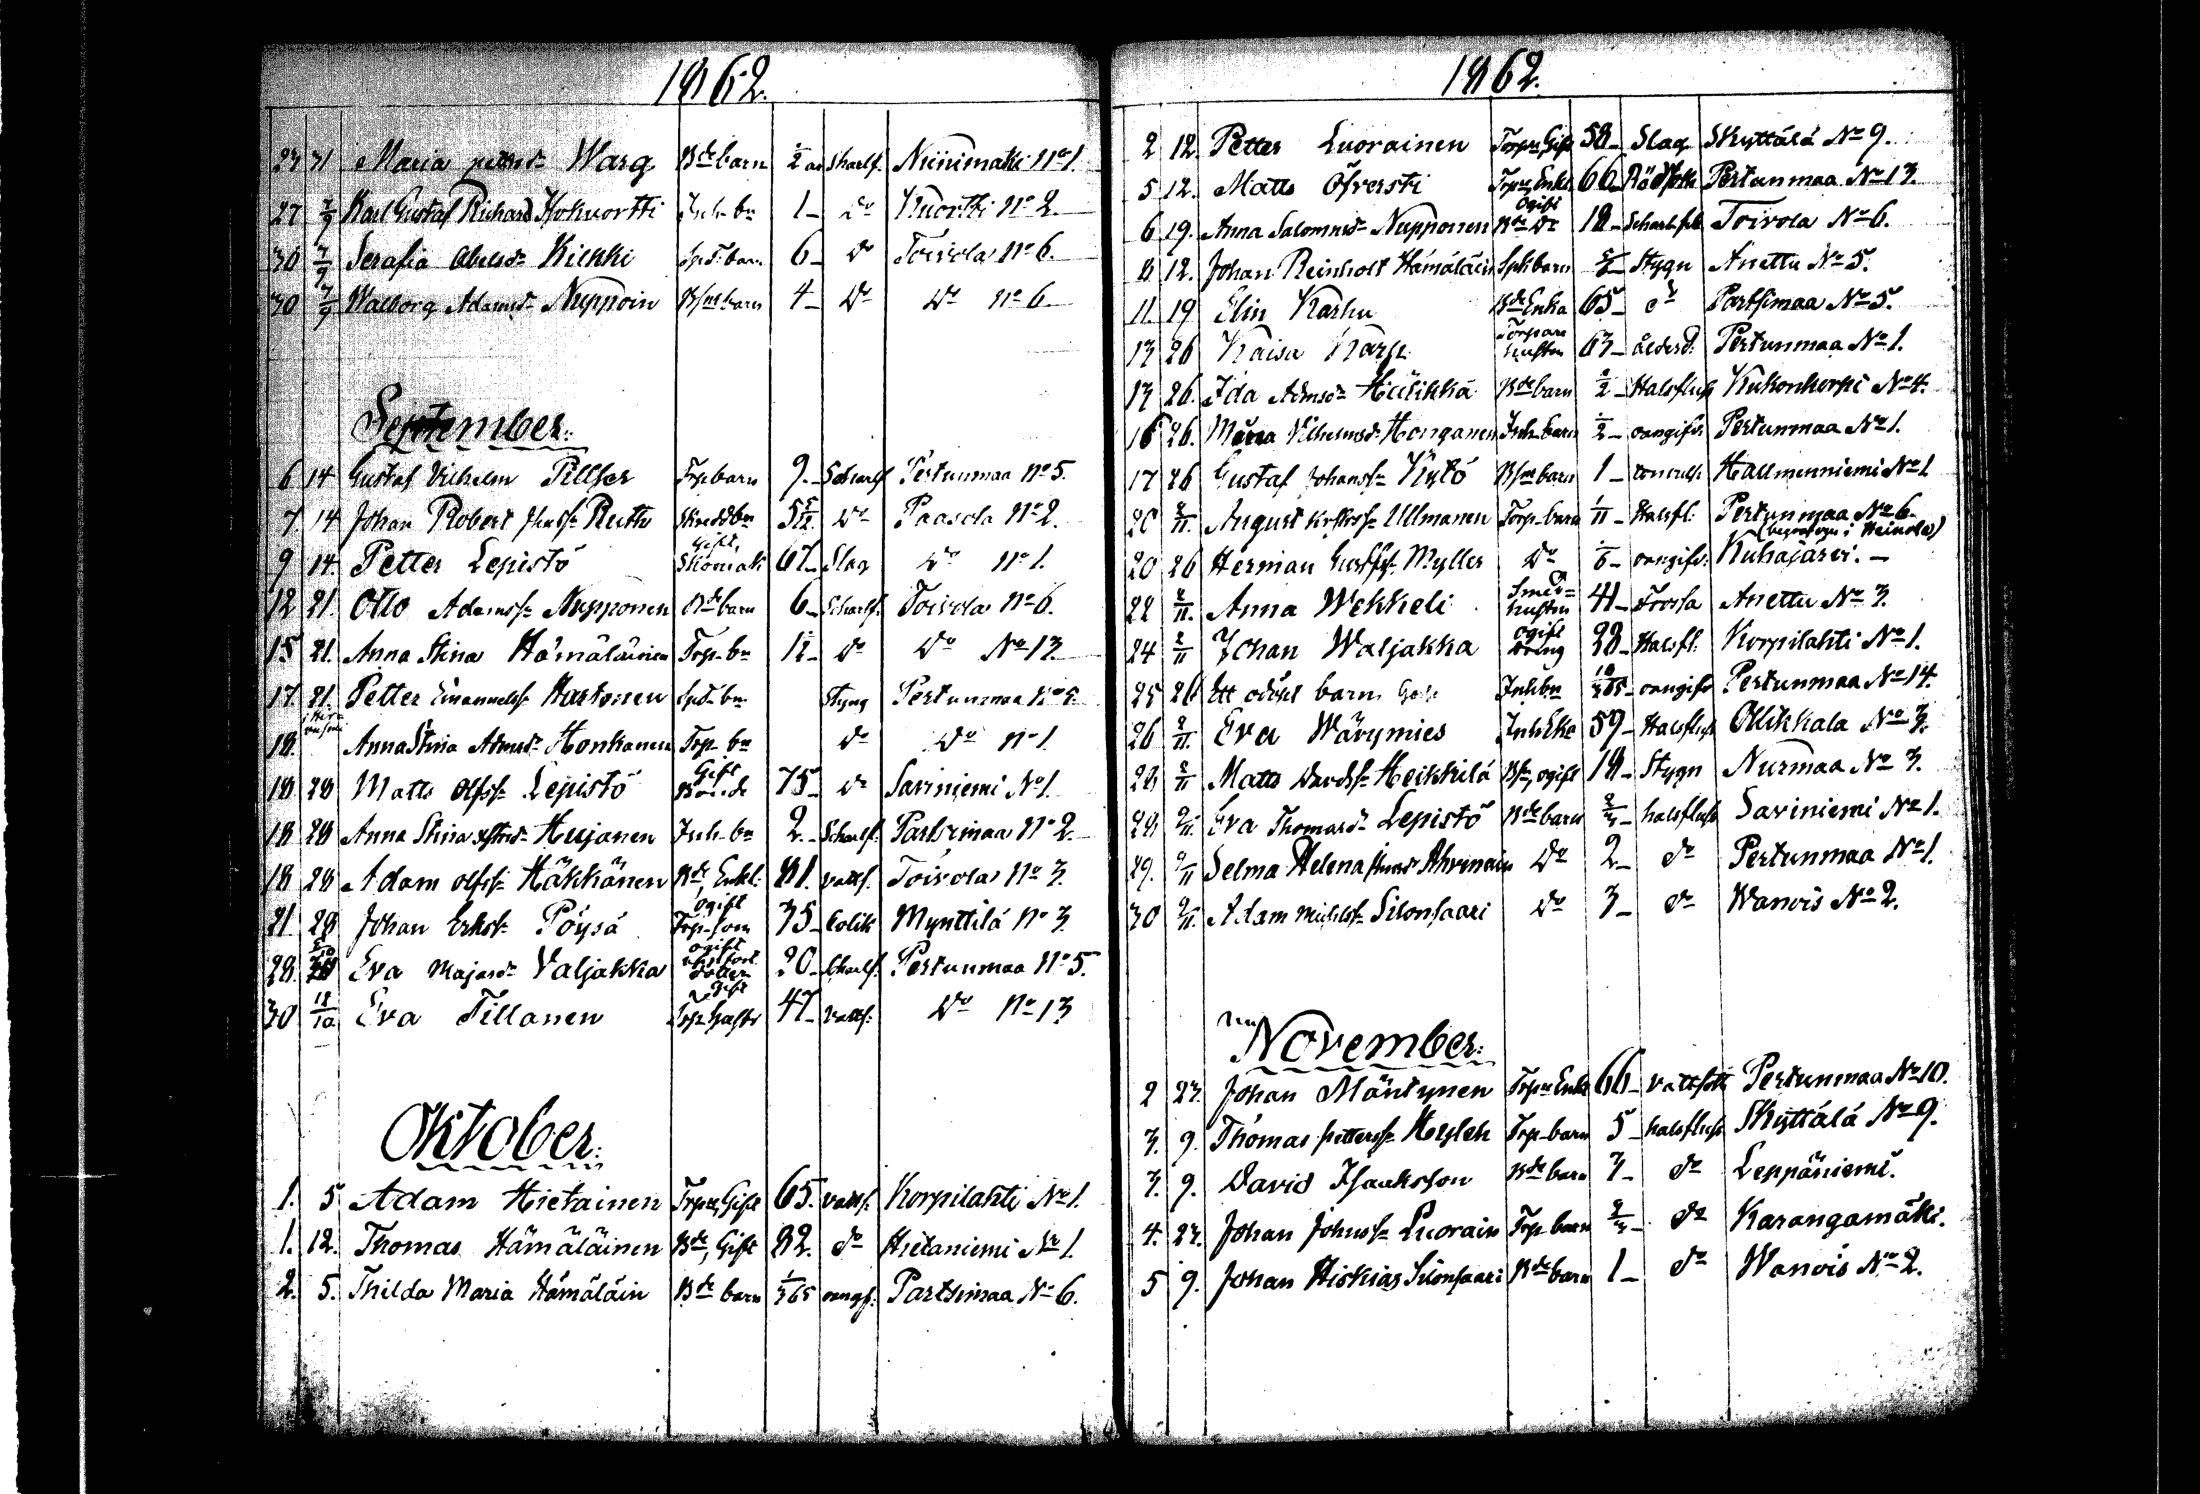 1862.
23 31 Maria pettersd:r Warg Bde barn 1/2 år Skarlf. Niinimäki No 1.
27 7/9 Karl Gustaf Richard Hokuortti Inh. bn 1 do Kuortti No 2.
30 7/9 Serafia Abelsd:r Kiekki barn 6 do Toivola No 6.
30 7/9 Walborg Adamsd:r Nuppoin barn 4 do do No 6
September:
6 14 Gustaf Vilhelm Pillfer Trp barn 9. Scharlf Pertunmaa No 5.
7. 14 Johan Robert Ruth Skreddbn 5 5/12 do Paasola No 2.
9 14. Petter Lepistö Gift, Skomak 67 Slag do No 1.
12 21. Otto Adamss: Nupponen Bde barn 6 Scharlf. Toivola No 6.
15 21. Anna Stina Hämäläinen Trp. bn do do No 13.
17. 21. Petter Emanuelss: Hartonen bn Styng Pertunmaa No 5.
18. Anna Stina Honkanen Trp bn do do No 1
18 28 Matts Olfss: Lepistö Gift Bonde 75 do Saviniemi No 1
18 28 Anna Stina Husjanen Inh. bn 2. Scharlf. Partsimaa No 2
18 28 Adam Olfss: Häkkänen Bde Enkl: 81. vatts. Toivola No 3.
21 28 Johan Erkss: Pöysä ogift Trp. son 35 Colik Mynttilä No 3
29. Eva Majasd:r Valjakka ogift dotter 20 Scharlf. Pertunmaa No 5.
30 12/10 Eva Tillanen Gift Trp. hustr 47 vatts: do No 13
Oktober:
1. 5 Adam Hietainen Trpr, Gift 65. vatts: Korpilahti No 1.
1. 12. Thomas Hämäläinen Bde, Gift 82. do Hietaniemi No 1.
2. 5. Thilda Maria Hämäläin Bde barn 1/365 oangf. Partsimaa No 6.
1862.
2 12. Petter Luorainen Torpr, Gift 58 Slag Skyttälä No 9.
5 12. Matts Öfversti Trpr, Enkl 66 Rödsott Pertunmaa No 13.
6 19. Anna Salomonsd:r Nupponen Ogift Bde dr 18 Scharlfeb Toivola No 6.
8 12. Johan Reinholt Hämäläin barn Stygn Anettu No 5.
11. 19 Elin Karhu Bde Enka 65 do Partsimaa No 5.
13 26 Kaisa Karp Torpare hustru 63 ålderd. Pertunmaa No 1.
13 26. Ida Admsd:r Hiilikkä Bde barn 2/2 Halsfluss Kuhonkorpi No 4.
16 26. Maria Vilhelmsd: Honganen Inh. barn 1/2 oangifv. Pertunmaa No 1.
17 26 Gustaf Johanss: Kytö barn 1 Hallmenniemi No 1
20 2/11. August Ullmanen Torp. barn 1/11 Halsfl. Pertunmaa No 6.
(begrafven i Heinola)
20 26 Herman Gustfss. Myller do oangifv. Kuhajärvi.
22 2/11. Anna Wekkeli Smeds hustru 41 Frossa Anettu No 3.
24 2/11 Johan Waljakka ogift dräng 28 Halsfl: Korpilahti No 1.
25 26 Ett odöpt barn, Goss Inh. bn 10/365 oangifv Pertunmaa No 14.
26 2/11. Eva Wärymies Inh. Eka 59 Halsfluss Ollikkala No 3.
28 2/11 Matts Davdss: Heikkilä ogift 18 Stygn Nurmaa No 3.
29 9/11. Eva Thomasd:r Lepistö Bde barn halsfluss Saviniemi No 1.
29. 9/11 Selma Helena Ahvenain do 2 do Pertunmaa No 1.
30 9/11. Adam Michlss: Silonsaari do 3 do Wanois No 2.
November:
2 23. Johan Mäntynen Trpr Enkl 66 vattsott Pertunmaa No 10.
3. 9. Thomas Petterss: Heyleh Trp. barn 5 halsfluss Skyttälä No 9.
3. 9. David Isaaksson Bde barn 3 do Leppäniemi.
4. 23. Johan Johnss: Luorain Trp. barn do Karangamäki.
5 9. Johan Hiskias Silonsaari Bde barn 1 do Wanois No 2.